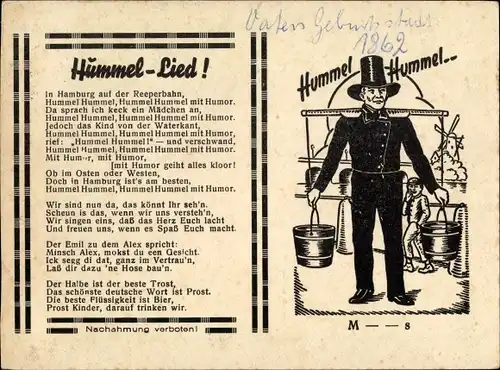 Vaters Geburtsstadt
1862
Hummel-Lied!
In Hamburg auf der Reeperbahn,
Hummel Hummel, Hummel Hummel mit Humor.
Da sprach ich keck ein Mädchen an,
Hummel Hummel, Hummel Hummel mit Humor.
Jedoch das Kind von der Waterkant,
Hummel Hummel, Hummel Hummel mit Humor,
rief: „Hummel Hummel!" — und verschwand,
Hummel Hummel, Hummel Hummel mit Humor.
Mit Hum-r, mit Humor,
[mit Humor geiht alles kloor!
Ob im Osten oder Westen,
Doch in Hamburg ist's am besten,
Hummel Hummel, Hummel Hummel mit Humor.
Wir sind nun da, das könnt Ihr seh'n.
Scheun is das, wenn wir uns versteh'n,
Wir singen eins, daß das Herz Euch lacht
Und freuen uns, wenn es Spaß Euch macht.
Der Emil zu dem Alex spricht:
Minsch Alex, mokst du een Gesicht.
Ick segg di dat, ganz im Vertrau'n,
Laß dir dazu 'ne Hose bau'n.
Der Halbe ist der beste Trost,
Das schönste deutsche Wort ist Prost.
Die beste Flüssigkeit ist Bier,
Prost Kinder, darauf trinken wir.
Nachahmung verboten!
Hummel Hummel--
M — — s